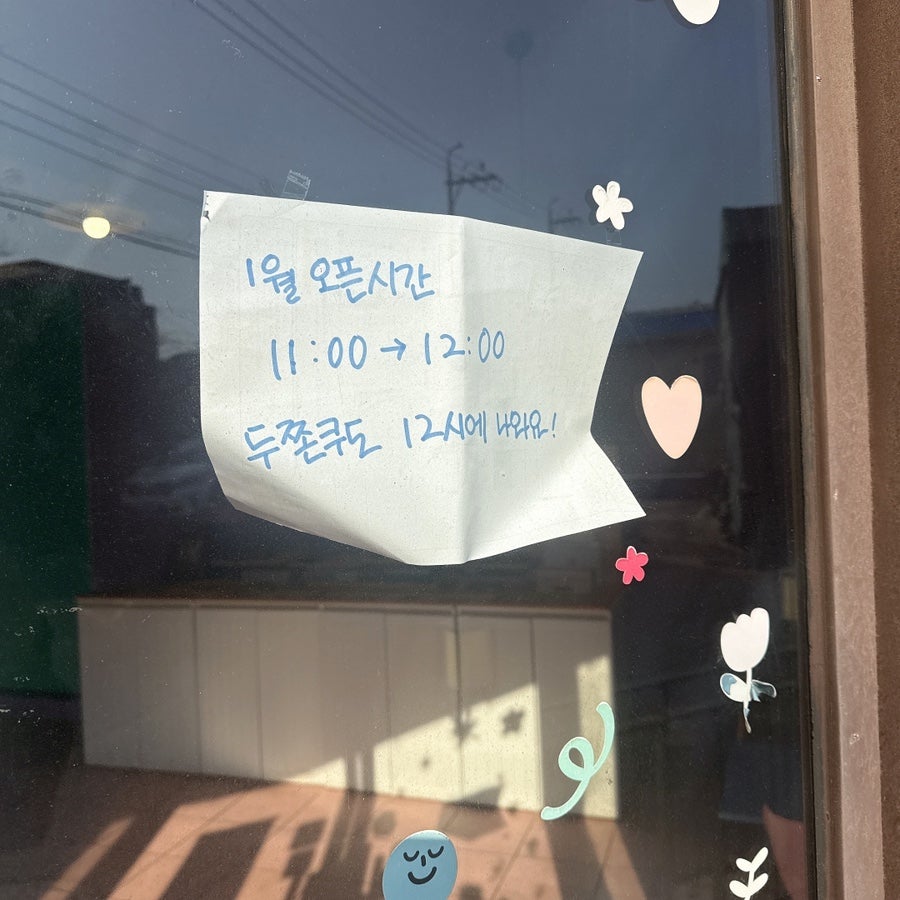 1월 오픈시간
11:00 → 12:00
두쫀쿠도 12시에 나와요!